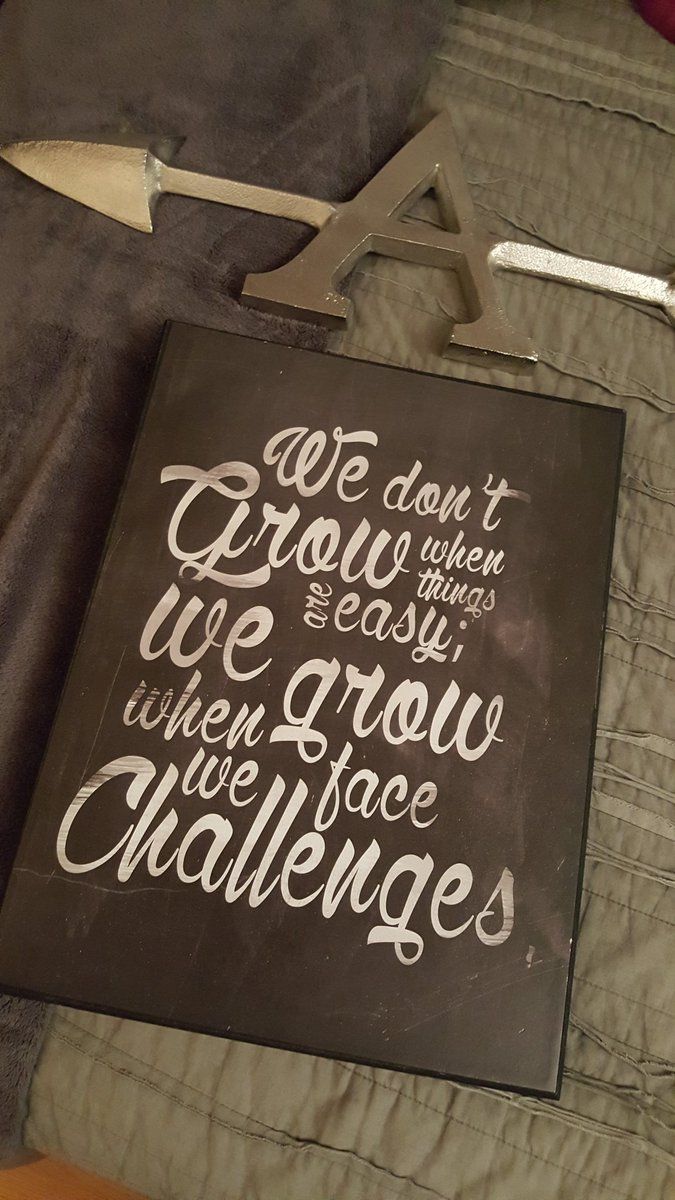 A
We don't
Grow when
things
are easy;
we grow
when
we face
Challenges